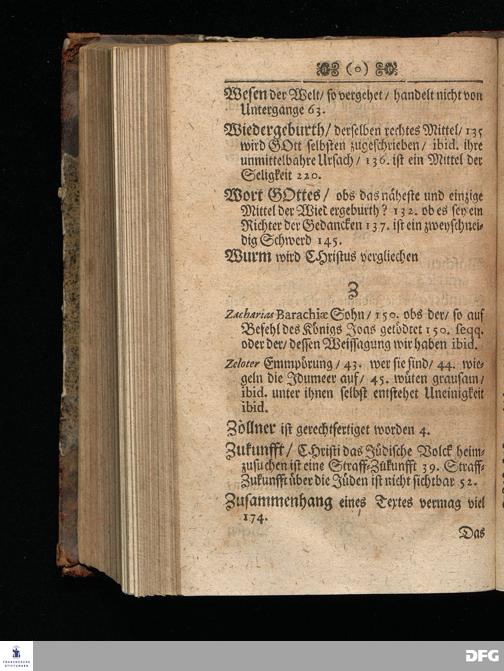 (o)
Wesen der Welt/ so vergehet/ handelt nicht von
Untergange 63.
Wiedergeburth/ derselben rechtes Mittel/ 135
wird GOtt selbsten zugeschrieben/ ibid. ihre
unmittelbahre Ursach/ 136. ist ein Mittel der
Seligkeit 220.
Wort GOttes/ obs das näheste und einzige
Mittel der Wied ergeburth? 132. ob es sey ein
Richter der Gedancken 137. ist ein zweyschnei-
dig Schwerd 145.
Wurm wird CHristus vergliechen
Z
Zacharias Barachiæ Sohn/ 150. obs der/ so auf
Befehl des Königs Joas getödtet 150. seqq.
oder der/ dessen Weissagung wir haben ibid.
Zeloter Emmpörung/ 43. wer sie sind/ 44. wie-
geln die Idumeer auf/ 45. wüten grausam/
ibid. unter ihnen selbst entstehet Uneinigkeit
ibid.
Zöllner ist gerechtfertiget worden 4.
Zukunfft/ CHristi das Jüdische Volck heim-
zusuchen ist eine Straff-Zukunfft 39. Straff-
Zukunfft über die Jüden ist nicht sichtbar 52.
Zusammenhang eines Textes vermag viel
174.
Das
FRANCKESCHE
STIFTUNGEN
DFG